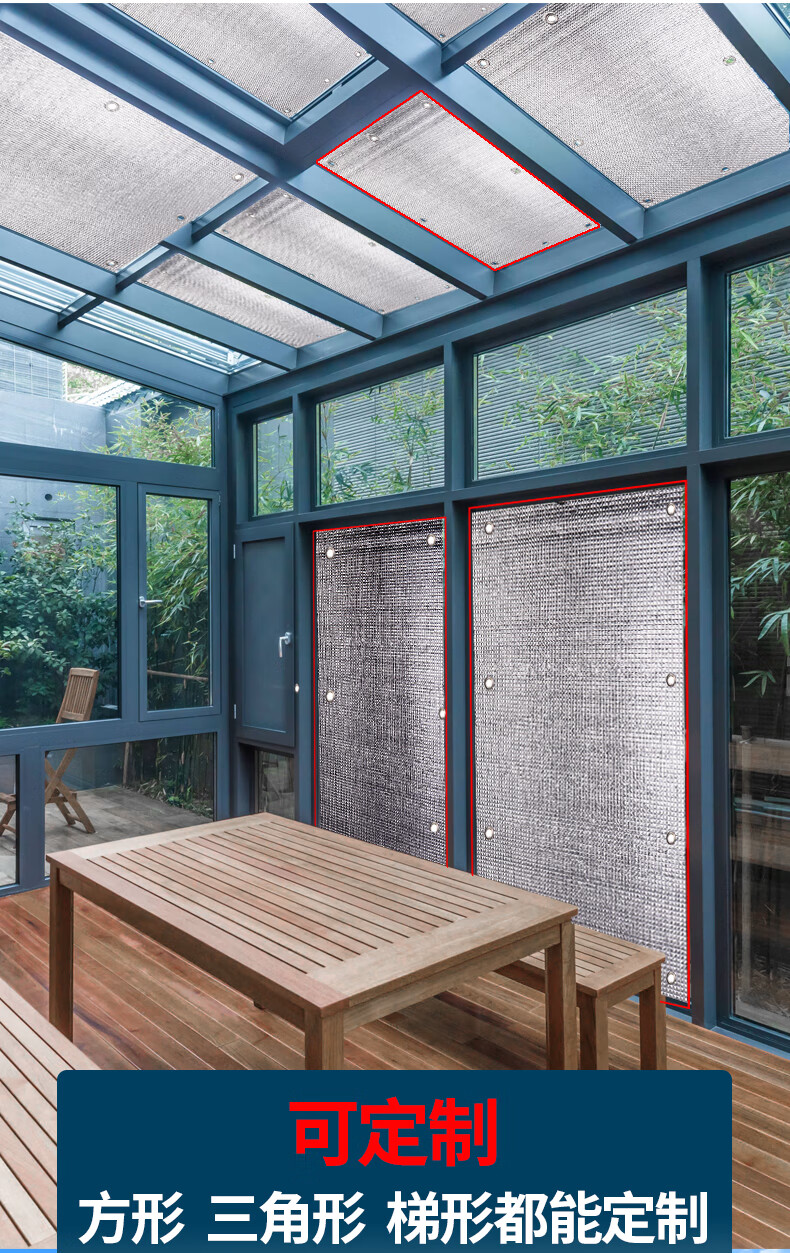 可定制
方形 三角形 梯形都能定制